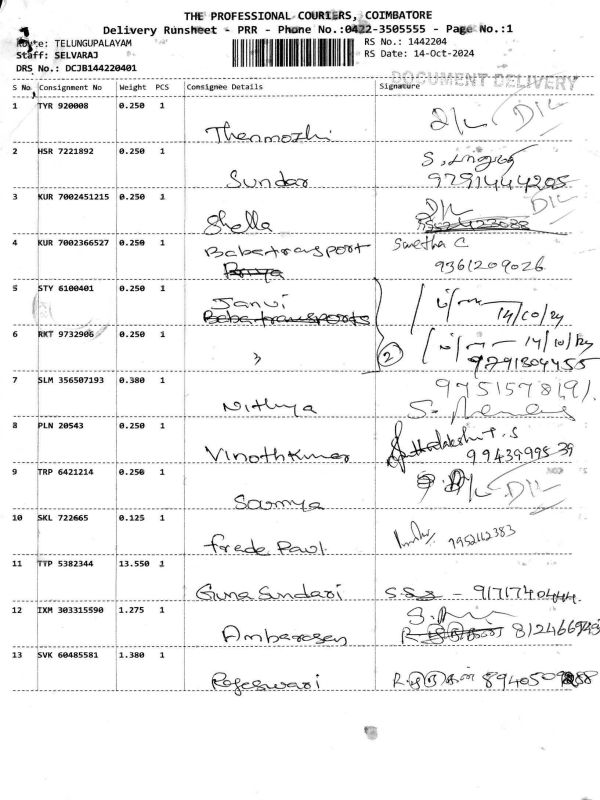 THE PROFESSIONAL COURIERS, COIMBATORE
Delivery Runsheet - PRR - Phone No.:0422-3505555 - Page No.:1
Route: TELUNGUPALAYAM RS No.: 1442204
Staff: SELVARAJ RS Date: 14-Oct-2024
DRS No.: DCJB144220401
DOCUMENT DELIVERY
S No. Consignment No Weight PCS Consignee Details Signature
1 TYR 920008 0.250 1
Thenmozhi D/L D/L
2 HSR 7221892 0.250 1
Sundar 9791444205
3 KUR 7002451215 0.250 1
Shella D/L D/L
4 KUR 7002366527 0.250 1 Babatransport Swetha C
Priya 9361209026
5 STY 6100401 0.250 1 Janvi
Babatransports 14/10/24
6 RKT 9732906 0.250 1 14/10/24
2 9791304455
7 SLM 356507193 0.380 1
Nithya
8 PLN 20543 0.250 1
Vinothkumar 9943999539
9 TRP 6421214 0.250 1
Sowmya D/L D/L
10 SKL 722665 0.125 1
Frede Paul 9952112383
11 TTP 5382344 13.550 1
Guna Sundari
12 IXM 303315590 1.275 1
Ambarasen
13 SVK 60485581 1.380 1
Rajeswari